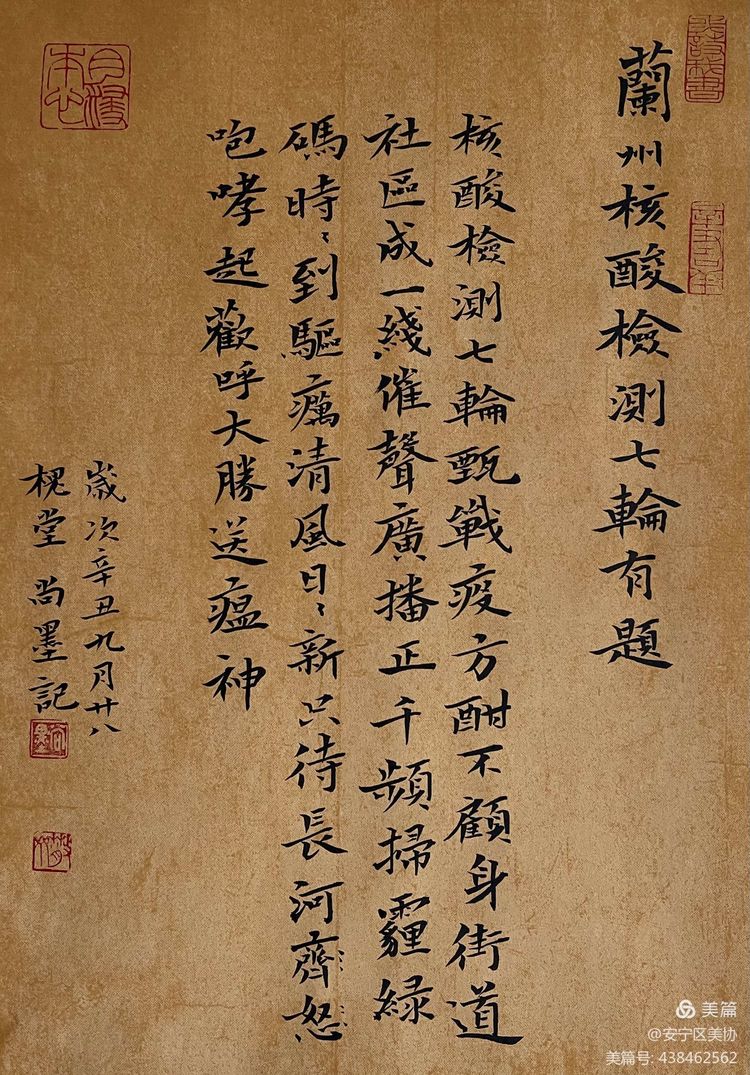 蘭州核酸檢測七輪有題
核酸檢測七輪甄戰疫方酣不顧身街道
社區成一綫催聲廣播正千頻掃霾緑
碼時〻到驅癘清風日〻新只待長河齊怒
咆哮起歡呼大勝送瘟神
歲次辛丑九月廿八
槐堂尚墨記
美篇
@安宁区美协
美篇号: 438462562